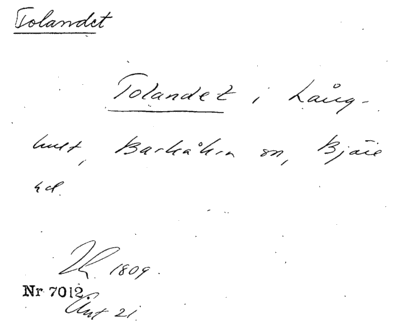 Tolandet
Tolandet i Lång-
hult, Barkåkra sn, Bjäre
hd.
1809.
Nr 7012
Akt 21